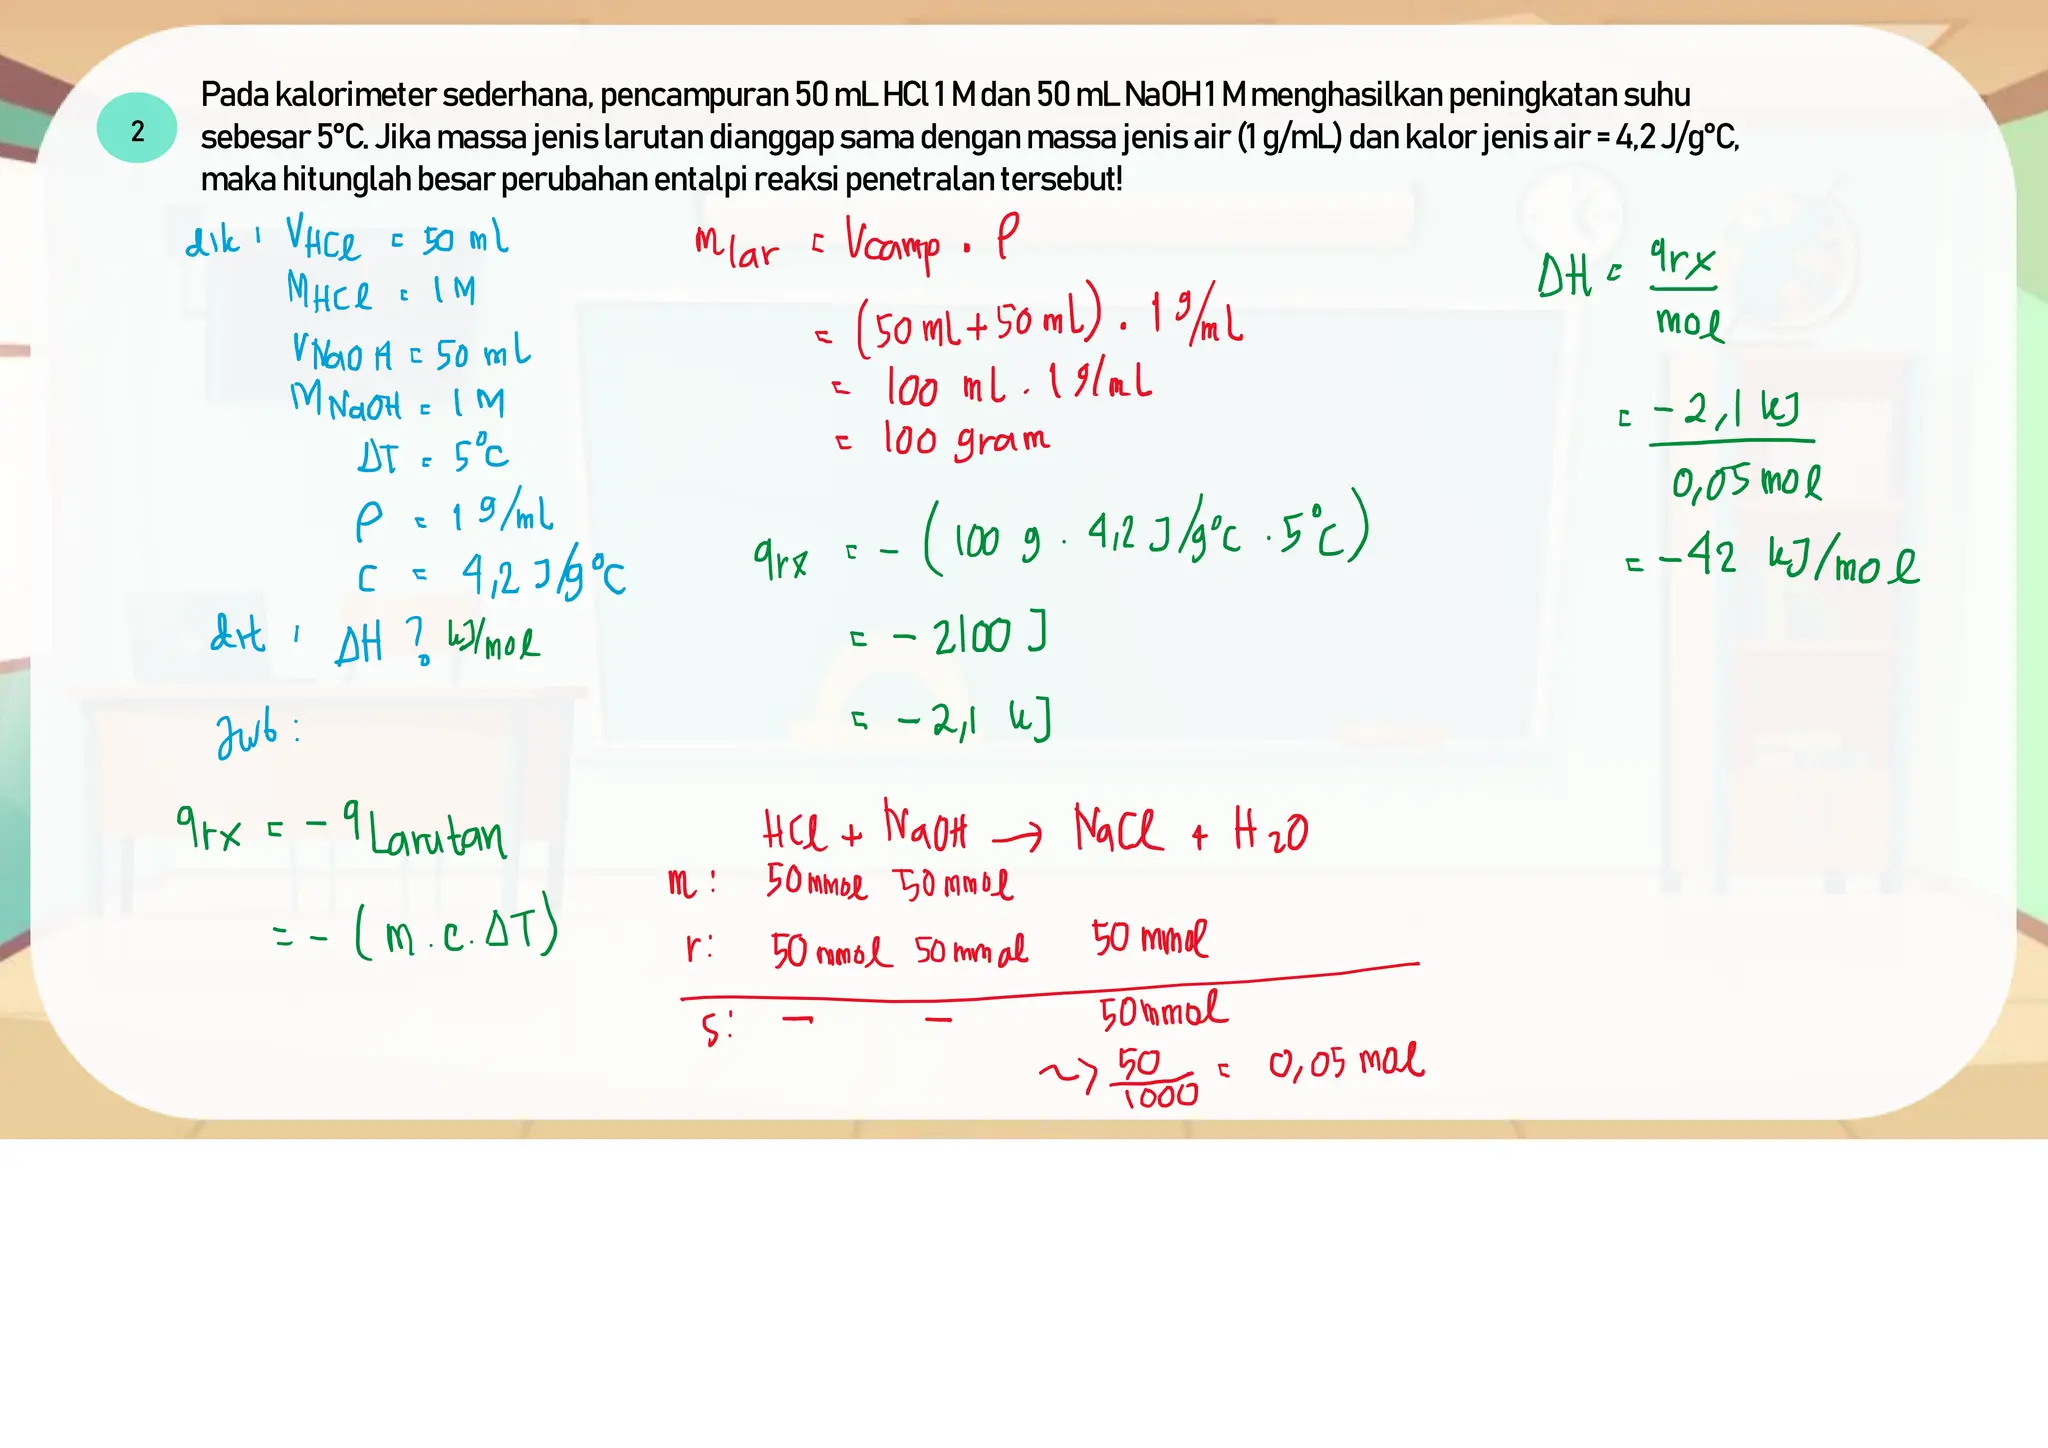 2
Pada kalorimeter sederhana, pencampuran 50 mL HCl 1 M dan 50 mL NaOH 1 M menghasilkan peningkatan suhu
sebesar 5°C. Jika massa jenis larutan dianggap sama dengan massa jenis air (1 g/mL) dan kalor jenis air = 4,2 J/g°C,
maka hitunglah besar perubahan entalpi reaksi penetralan tersebut!
dik : VHCl = 50 ml
MHCl = 1 M
VNaOH = 50 mL
MNaOH = 1 M
ΔT = 5°C
ρ = 1 g/mL
c = 4,2 J/g°C
dit : ΔH ? kJ/mol
Jwb :
qrx = - qLarutan
= - (m . c . ΔT)
mlar = Vcamp . ρ
= (50 mL + 50 mL) . 1 g/mL
= 100 mL . 1 g/mL
= 100 gram
qrx = - (100 g . 4,2 J/g°C . 5°C)
= - 2100 J
= - 2,1 kJ
HCl + NaOH → NaCl + H2O
m : 50 mmol 50 mmol
r : 50 mmol 50 mmol 50 mmol
s : - - 50 mmol
~> 50/1000 = 0,05 mol
ΔH = qrx/mol
= -2,1 kJ/0,05 mol
= -42 kJ/mol